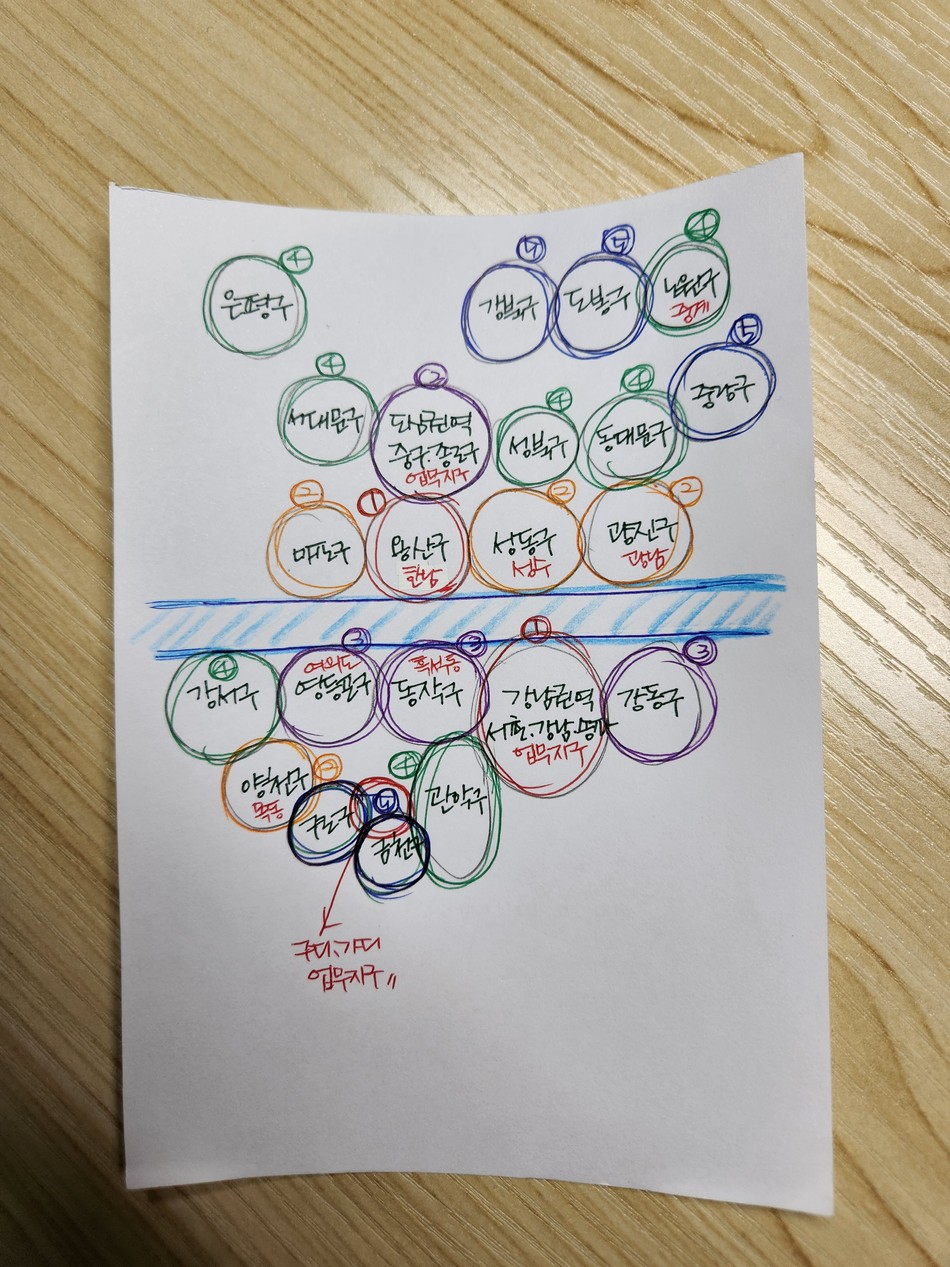 ④
은평구
5
강북구
5
도봉구
④
노원구
중계
⑤
중랑구
④
서대문구
도심권역
중구.종로구
업무지구
④
성북구
④
동대문구
②
마포구
①
용산구
한남
②
성동구
성수
②
광진구
광남
④
강서구
③
여의도
영등포구
③
흑석동
동작구
①
강남권역
서초.강남.송파
업무지구
③
강동구
②
양천구
목동
구로구
5
금천구
④
관악구
구디,가디
업무지구